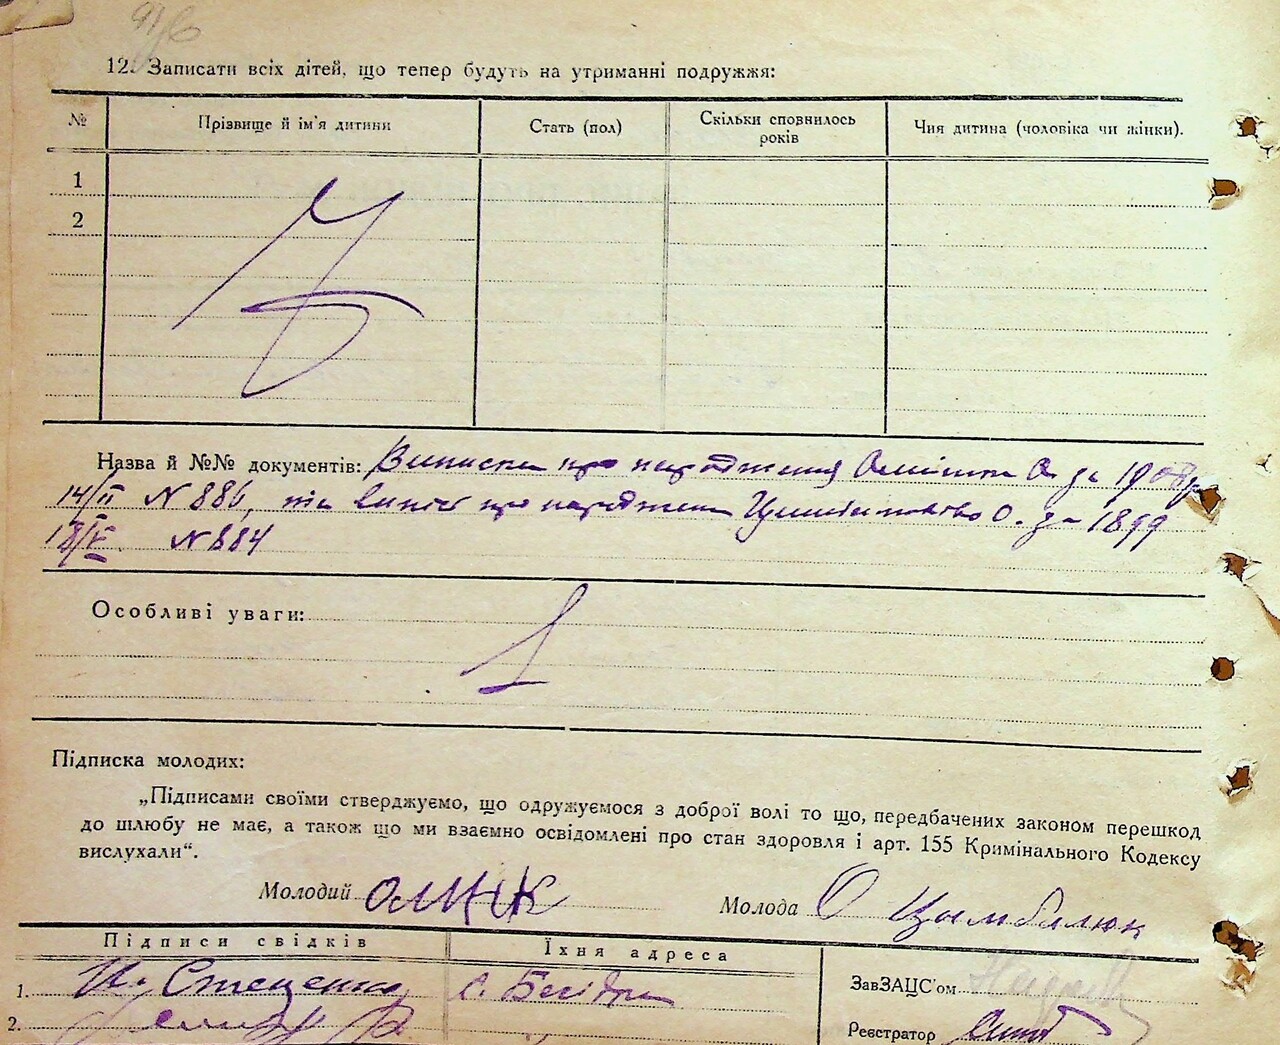 12. Записати всіх дітей, що тепер будуть на утриманні подружжя:
№ Прізвище й ім'я дитини Стать (пол) Скільки сповнилось років Чия дитина (чоловіка чи жінки).
1
2
Назва й №№ документів: Виписка про народження за
14/II N 886, та про народження О. за 1899
18/V N 884
Особливі уваги:
Підписка молодих:
„Підписами своїми стверджуємо, що одружуємося з доброї волі то що, передбачених законом перешкод
до шлюбу не має, а також що ми взаємно освідомлені про стан здоровля і арт. 155 Кримінального Кодексу
вислухали“.
Молодий Молода О Цымбалюк
Підписи свідків Їхня адреса
1. Стеценко с.
ЗавЗАЦС'ом
2.
Реєстратор